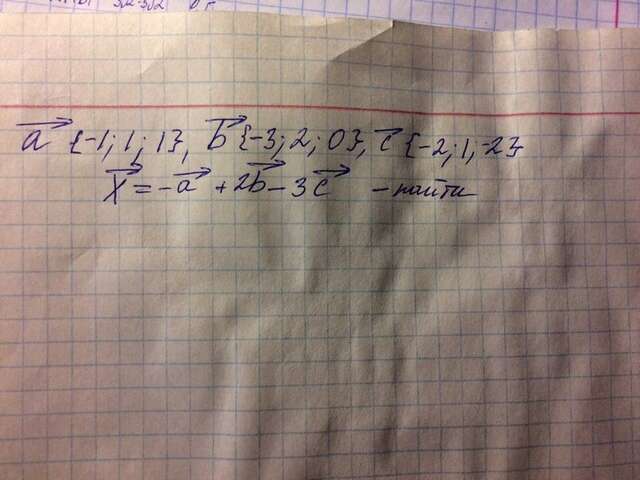 a⃗ {-1; 1; 1}, b⃗ {-3; 2; 0}, c⃗ {-2; 1; -2}
x⃗ = -a⃗ + 2b⃗ - 3c⃗ - найти